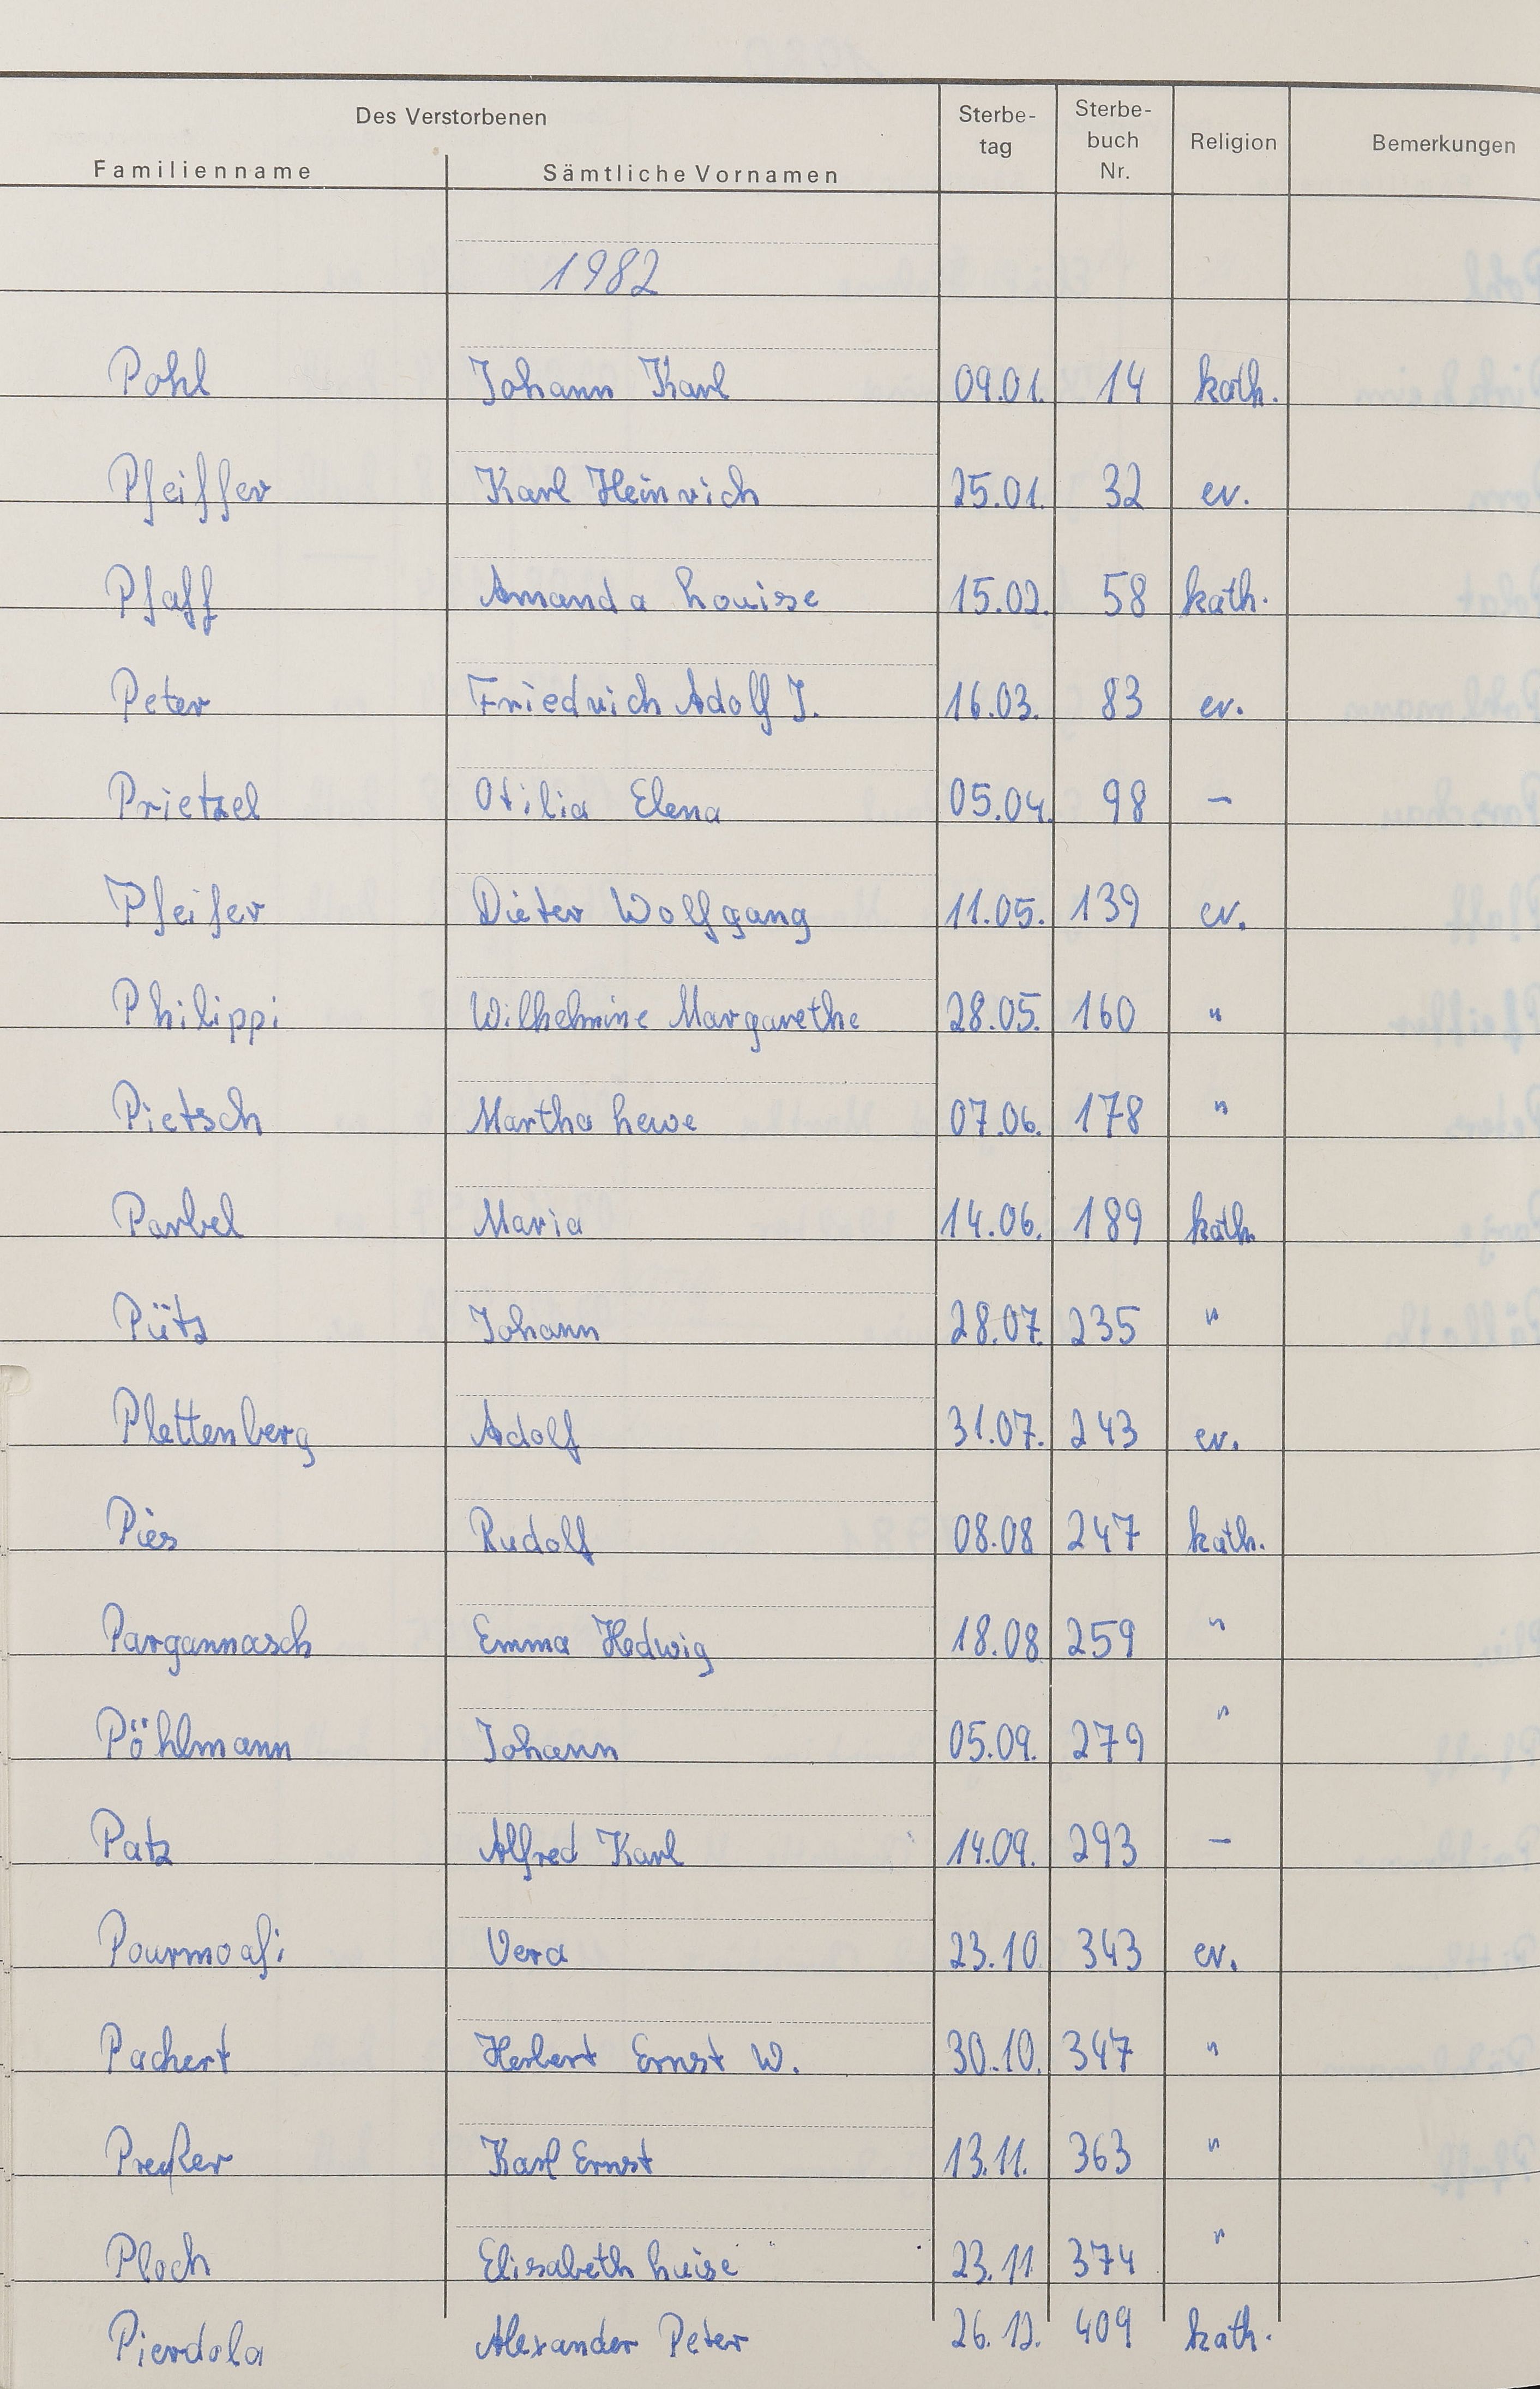 Des Verstorbenen
Familienname Sämtliche Vornamen Sterbe-tag Sterbe-buch Nr. Religion Bemerkungen
1982
Pohl Johann Karl 09.01. 14 kath.
Pfeiffer Karl Heinrich 25.01. 32 ev.
Pfaff Amanda Louise 15.02. 58 kath.
Peter Friedrich Adolf J. 16.03. 83 ev.
Prietzel Otilia Elena 05.04. 98 –
Pfeifer Dieter Wolfgang 11.05. 139 ev.
Philippi Wilhelmine Margarethe 28.05. 160 "
Pietsch Martha 07.06. 178 "
Parbel Maria 14.06. 189 kath.
Pütz Johann 28.07. 235 "
Plettenberg Adolf 31.07. 243 ev.
Pies Rudolf 08.08 247 kath.
Pargannasch Emma Hedwig 18.08 259 "
Pöhlmann Johann 05.09. 279 "
Patz Alfred Karl 14.09. 293 –
Pourmoafi Vera 23.10 343 ev.
Pachert Herbert Ernst W. 30.10. 347 "
Preßer Karl Ernst 13.11. 363 "
Ploch Elisabeth Luise 23.11 374 "
Pierdola Alexander Peter 26.12. 409 kath.